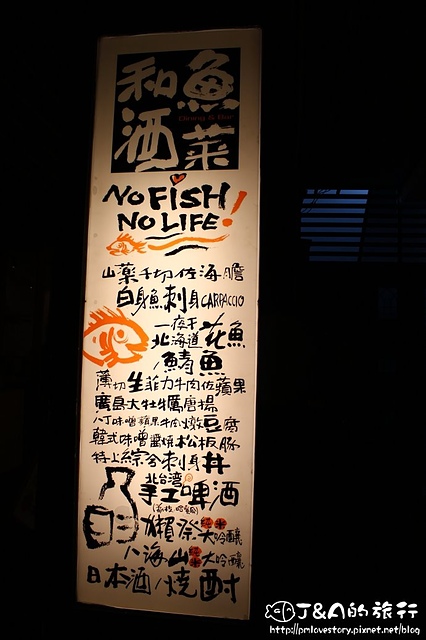 魚菜
和酒
Dining & Bar
NO FISH
NO LIFE!
山藥手切佐海膽
白身魚刺身CARPACCIO
一夜干
北海道花魚
/鯖魚
薄切生菲力牛肉佐蘋果
廣島大牡蠣唐揚
八丁味噌蘋果牛肉燉豆腐
韓式味噌醬燒松板豚
特上綜合刺身丼
北台湾
手工啤酒
獺祭 純米大吟釀
八海山 純米大吟釀
日本酒/燒酎
J&A的旅行
http://pmlovestory.pixnet.net/blog